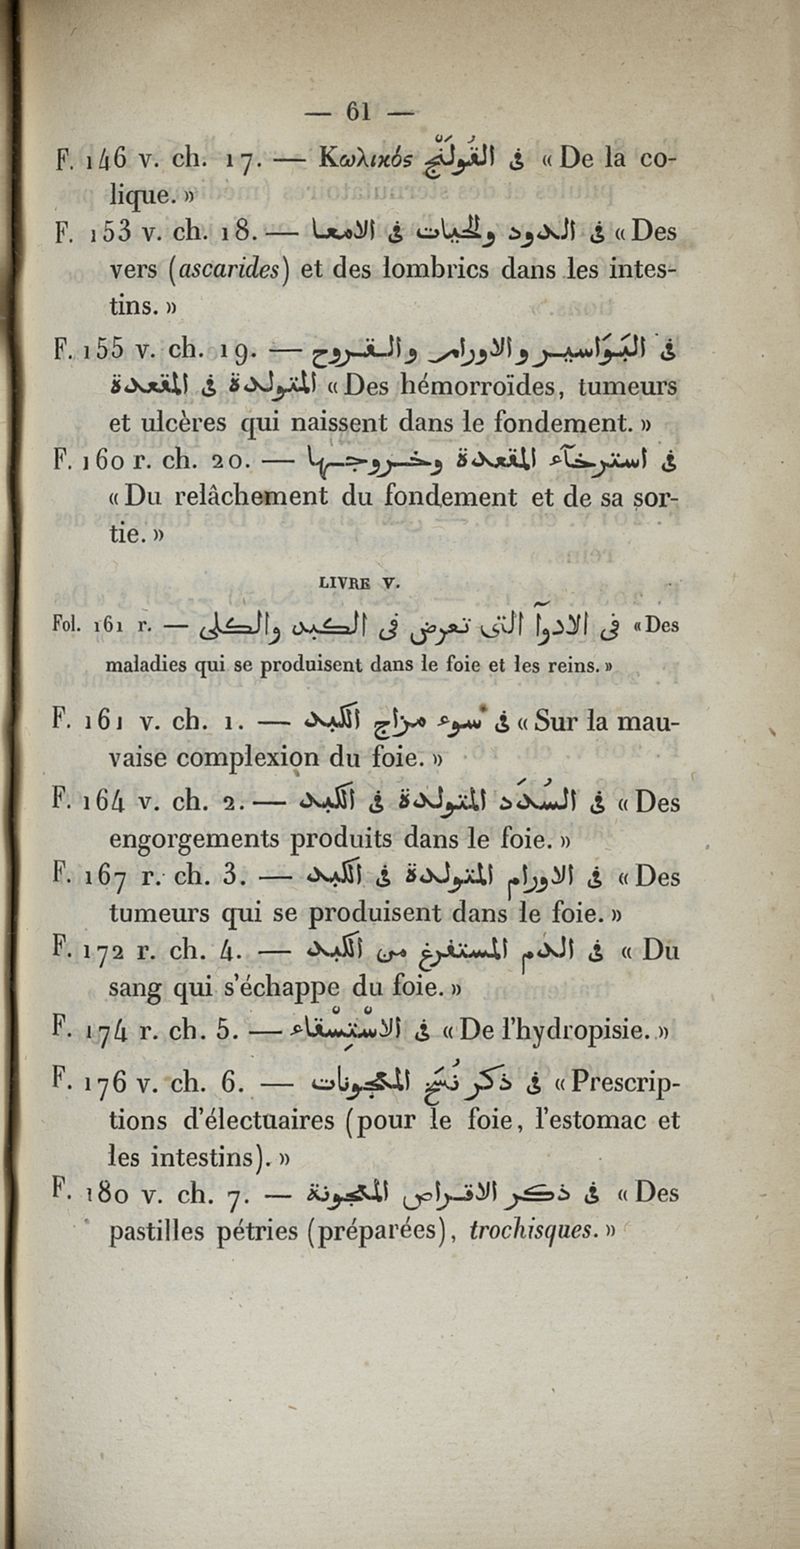 — 61 —
F. 146 v. ch. 17. — Κωλικός في القُولَنْج « De la co-
lique. »
F. 153 v. ch. 18. — في الدود والحيات في الامعا « Des
vers (ascarides) et des lombrics dans les intes-
tins. »
F. 155 v. ch. 19. — في البَوَاسير والاورام والقروح
المتولدة في المقعدة « Des hémorroïdes, tumeurs
et ulcères qui naissent dans le fondement. »
F. 160 r. ch. 20. — في استرخآء المقعدة وخروجها
« Du relâchement du fondement et de sa sor-
tie. »
LIVRE V.
Fol. 161 r. — في الادوآ التى تعرض فى الكبد والكلى « Des
maladies qui se produisent dans le foie et les reins. »
F. 161 v. ch. 1. — في سوء مزاج الكبد « Sur la mau-
vaise complexion du foie. »
F. 164 v. ch. 2. — في السُدَد المتولدة في الكبد « Des
engorgements produits dans le foie. »
F. 167 r. ch. 3. — في الاورام المتولدة في الكبد « Des
tumeurs qui se produisent dans le foie. »
F. 172 r. ch. 4. — في الدم المستفرغ من الكبد « Du
sang qui s'échappe du foie. »
F. 174 r. ch. 5. — في الاسْتِسْقاء « De l'hydropisie. »
F. 176 v. ch. 6. — في ذكر نُسَخ المعجونات « Prescrip-
tions d'électuaires (pour le foie, l'estomac et
les intestins). »
F. 180 v. ch. 7. — في ذكر الاقراص المعجونة « Des
pastilles pétries (préparées), trochisques. »